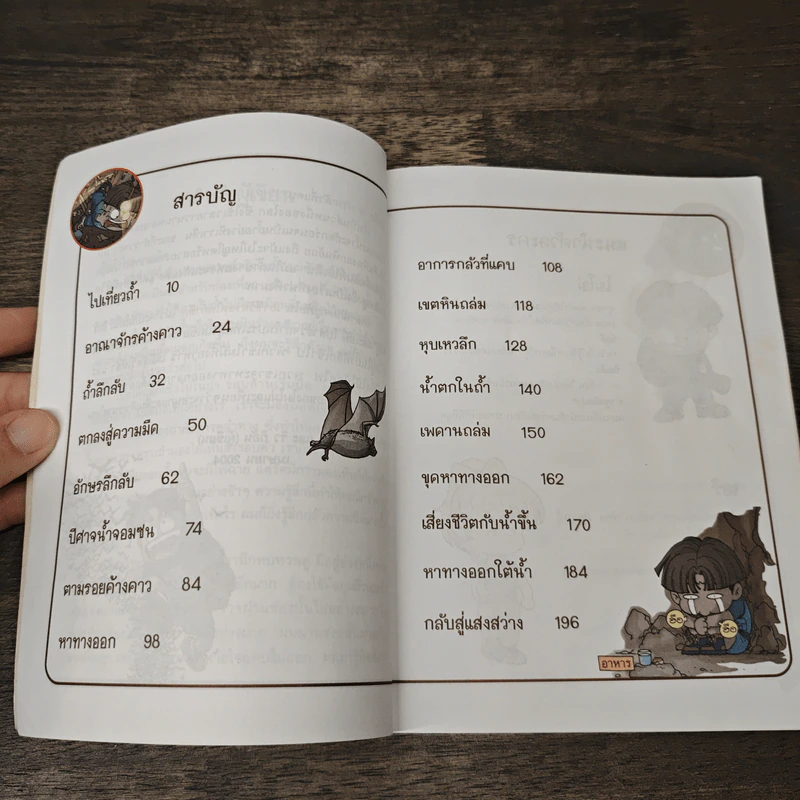 สารบัญ
ไปเที่ยวถ้ำ 10
อาณาจักรค้างคาว 24
ถ้ำลึกลับ 32
ตกลงสู่ความมืด 50
อักษรลึกลับ 62
ปีศาจน้ำจอมซน 74
ตามรอยค้างคาว 84
หาทางออก 98
อาการกลัวที่แคบ 108
เขตหินถล่ม 118
หุบเหวลึก 128
น้ำตกในถ้ำ 140
เพดานถล่ม 150
ขุดหาทางออก 162
เสี่ยงชีวิตกับน้ำขึ้น 170
หาทางออกใต้น้ำ 184
กลับสู่แสงสว่าง 196
ฮือ
ฮือ
อาหาร